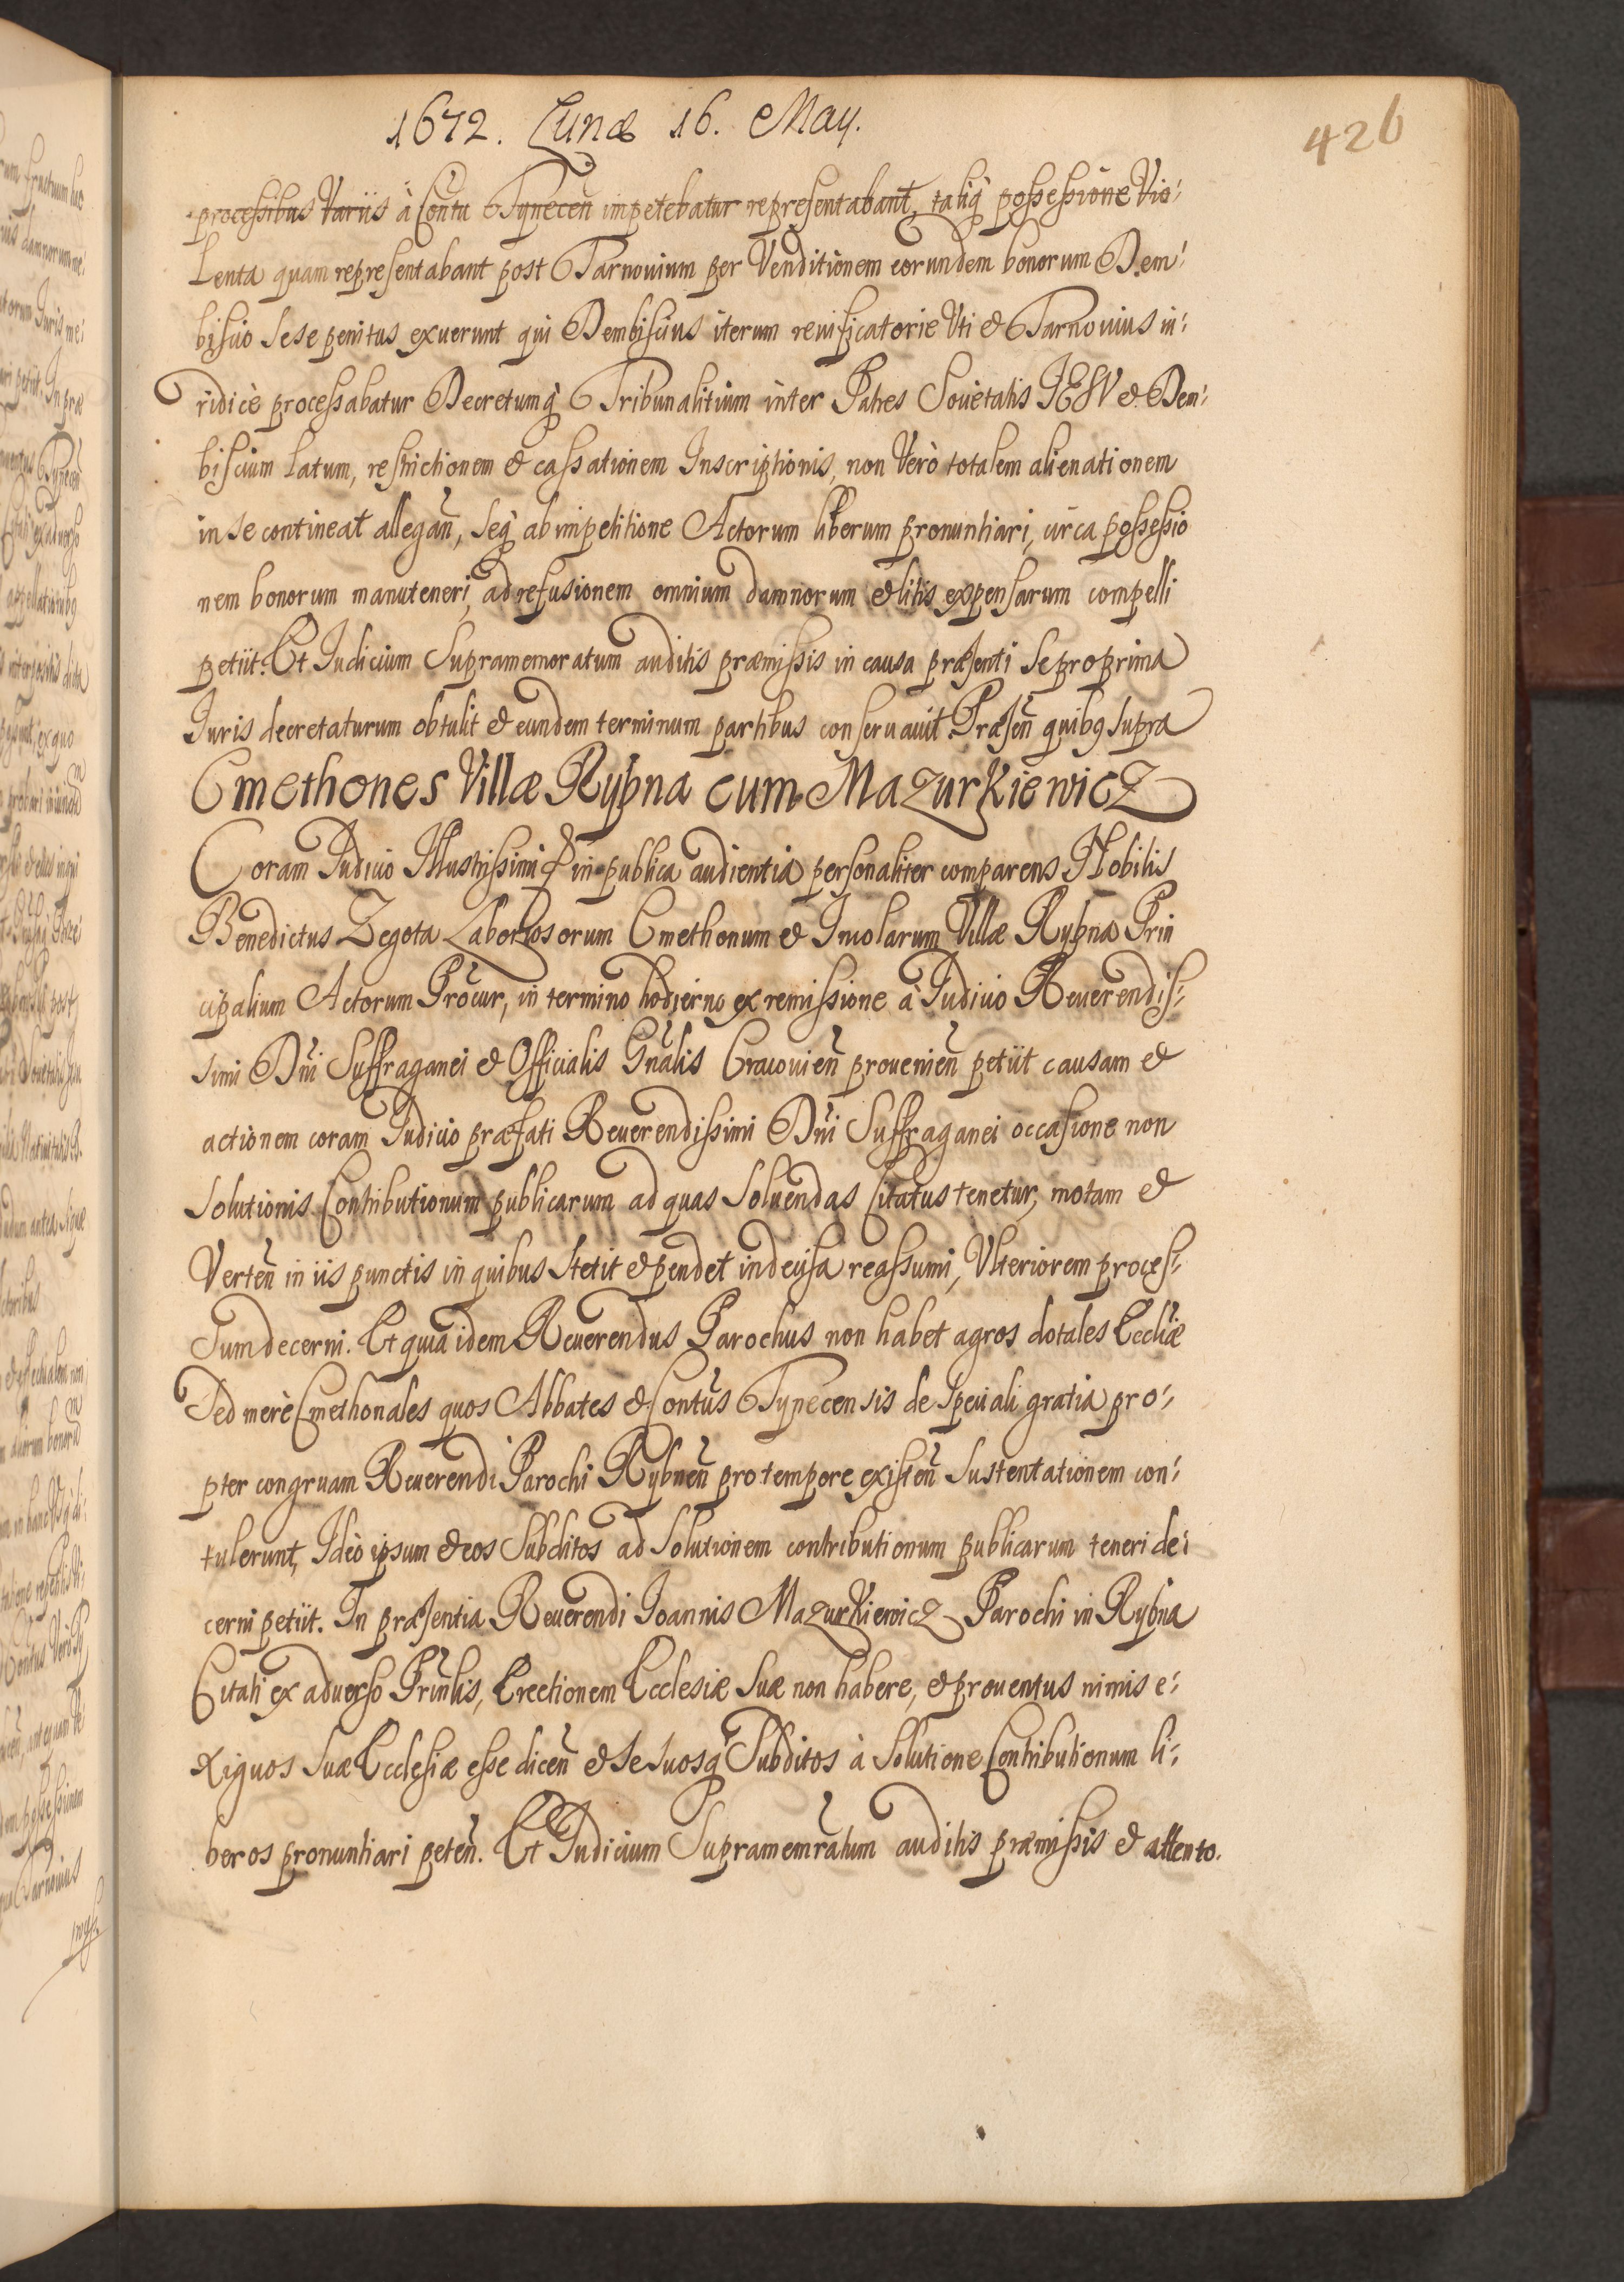 1672. Lunæ 16. May.
426
processibus Variis à Conũtu Tynecen̄ impetebatur representabant, taliq̃ possessione Vio⸗
lenta quam representabant post Tarnovium per Venditionem eorundem bonorum Dem⸗
biscio sese penitus exuerunt qui Dembiscius iterum reinficatorie Uti & Tarnovius iu⸗
ridicè processabatur Decretumq̃ Tribunalitium inter Patres Societatis IESV & Dem⸗
biscium latum, restrictionem & cassationem Inscriptionis, non Verò totalem alienationem
in se contineat allegan̄, seq̃ ab impetitione Actorum liberum pronuntiari, circa possessio
nem bonorum manuteneri, ad refusionem omnium damnorum & litis expensarum compelli
petiit. Et Iudicium Supramemoratum auditis præmissis in causa præsenti se pro prima
Iuris decretaturum obtulit & eundem terminum partibus conseruauit. Præsen̄ quibꝰ supra
Cmethones Villæ Rybna cum Mazurkiewicz
Coram Iudicio Illustrissimi & in publica audientia personaliter comparens Nobilis
Benedictus Zegota Laboriosorum Cmethonum & Incolarum Villæ Rybna Prin
cipalium Actorum Procur, in termino hodierno ex remissione à Iudicio Reuerendis⸗
simi Dn̄i Suffraganei & Officialis Gn̄alis Cracouien̄ prouenien̄ petiit causam &
actionem coram Iudicio præfati Reuerendissimi Dn̄i Suffraganei occasione non
solutionis Contributionum publicarum ad quas soluendas Citatus tenetur, motam &
Verten̄ in iis punctis in quibus stetit & pendet indecisa reassumi, Vlteriorem proces⸗
sum decerni. Et quia idem Reuerendus Parochus non habet agros dotales Eccliæ
sed merè Cmethonales quos Abbates & Conũtus Tynecensis de speciali gratia pro⸗
pter congruam Reuerendi Parochi Rybnen̄ pro tempore existen̄ sustentationem con⸗
tulerunt, Ideò ipsum & eos Subditos ad solutionem contributionum publicarum teneri de⸗
cerni petiit. In præsentia Reuerendi Ioannis Mazurkiewicz Parochi in Rybna
Citati ex aduerso Prin̄lis, Erectionem Ecclesiæ suæ non habere, & prouentus nimis e⸗
xiguos suæ Ecclesiæ esse dicen̄ & se suosq̃ Subditos à solutione Contributionum li⸗
beros pronuntiari peten̄. Et Iudicium Supramemratum auditis præmissis & attento.